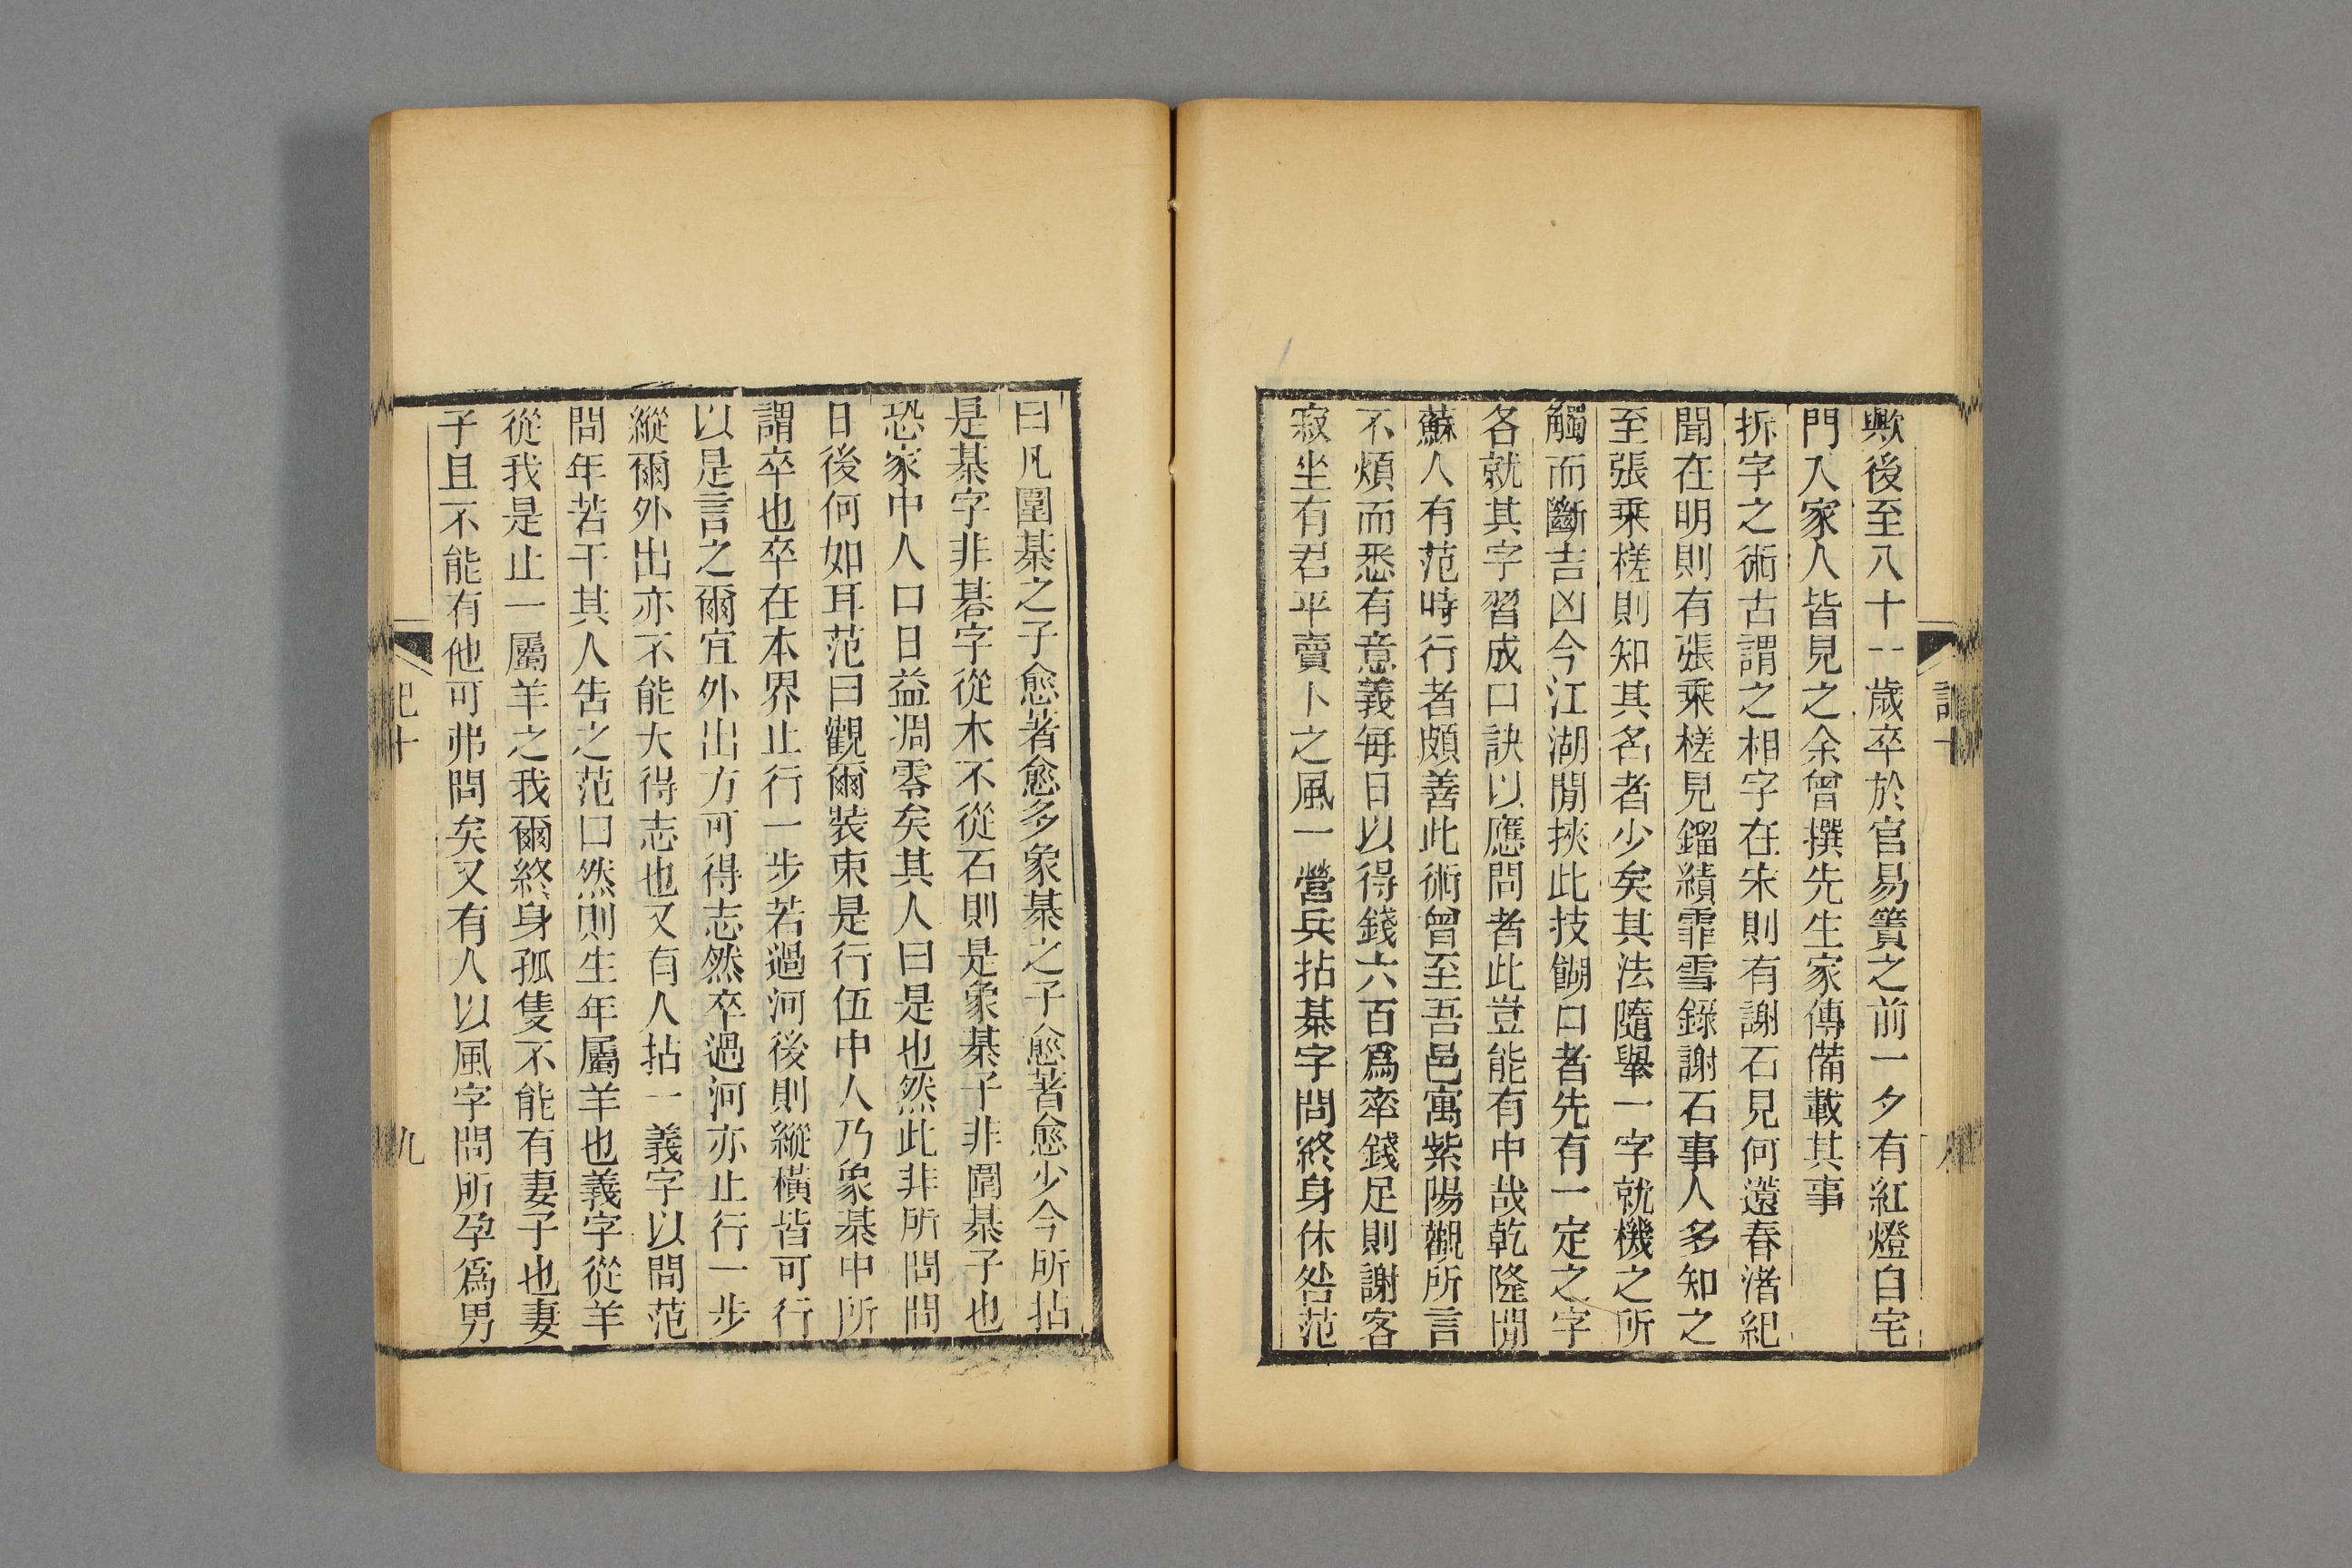 歟後至八十一歲卒於官易簀之前一夕有紅燈自宅
門入家人皆見之余曾撰先生家傳備載其事
拆字之術古謂之相字在宋則有謝石見何薳春渚紀
聞在明則有張乘槎見鎦績霏雪錄謝石事人多知之
至張乘槎則知其名者少矣其法隨舉一字就機之所
觸而斷吉凶今江湖閒挾此技餬口者先有一定之字
各就其字習成口訣以應問者此豈能有中哉乾隆閒
蘇人有范時行者頗善此術曾至吾邑寓紫陽觀所言
不煩而悉有意義每日以得錢六百爲率錢足則謝客
寂坐有君平賣卜之風一營兵拈棊字問終身休咎范
曰凡圍棊之子愈著愈多象棊之子愈著愈少今所拈
是棊字非碁字從木不從石則是象棊子非圍棊子也
恐家中人口日益凋零矣其人曰是也然此非所問問
日後何如耳范曰觀爾裝束是行伍中人乃象棊中所
謂卒也卒在本界止行一步若過河後則縱橫皆可行
以是言之爾宜外出方可得志然卒過河亦止行一步
縱爾外出亦不能大得志也又有人拈一義字以問范
問年若干其人告之范曰然則生年屬羊也義字從羊
從我是止一屬羊之我爾終身孤隻不能有妻子也妻
子且不能有他可弗問矣又有人以風字問所孕爲男
九